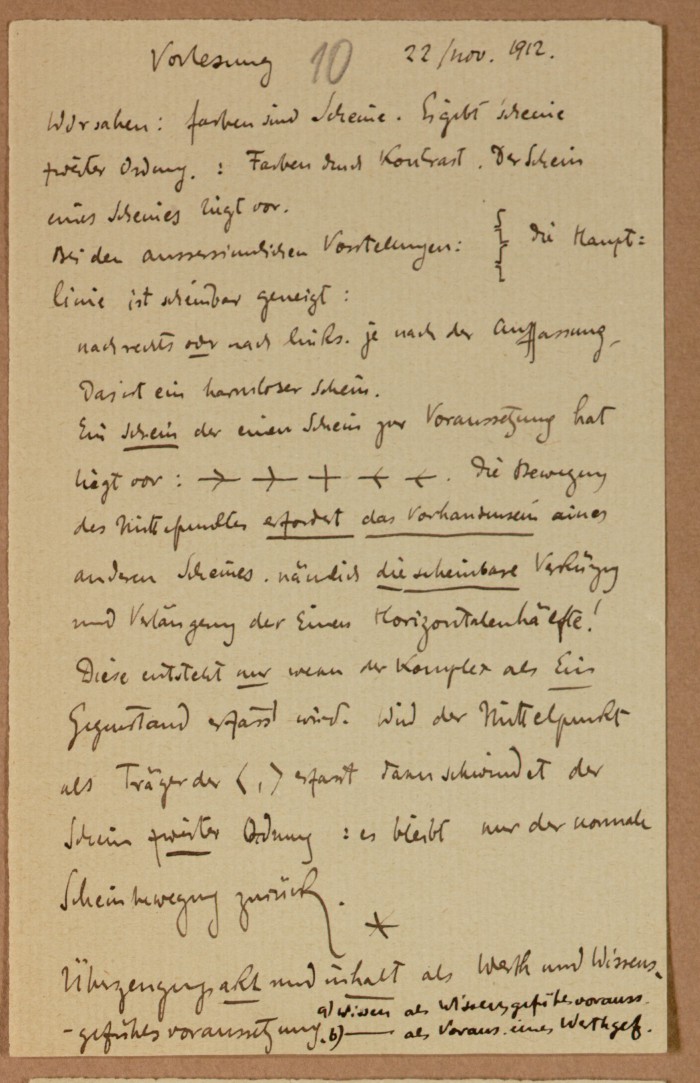 Vorlesung 10 22/nov. 1912.
Wir sahen: Farben sind Scheine. Es gibt Scheine
zweiter Ordnung. : Farben durch Kontrast. Der Schein
eines Scheines liegt vor.
Bei den aussersinnlichen Vorstellungen: { die Haupt=
linie ist scheinbar geneigt:
nach rechts oder nach links. je nach der Auffassung,
Das ist ein harmloser Schein.
Ein Schein der einen Schein zur Voraussetzung hat
liegt vor: . Die Bewegung
des Mittelpunktes erfordert das Vorhandensein eines
anderen Scheines. nämlich die scheinbare Verkürzung
und Verlängerung der Einen Horizontalenhälfte!
Diese entsteht nur wenn der Komplex als Ein
Gegenstand erfasst wird. Wird der Mittelpunkt
als Träger der <, > erfasst dann schwindet der
Schein zweiter Ordnung : es bleibt nur der normale
Scheinbewegung zurück.
Überzeugungsakt und inhalt als Werth und Wissens-
-gefühlsvoraussetzung. a) Wissen als Wissensgefühlsvorauss.
b) —— als Voraus. eines Werthgef.